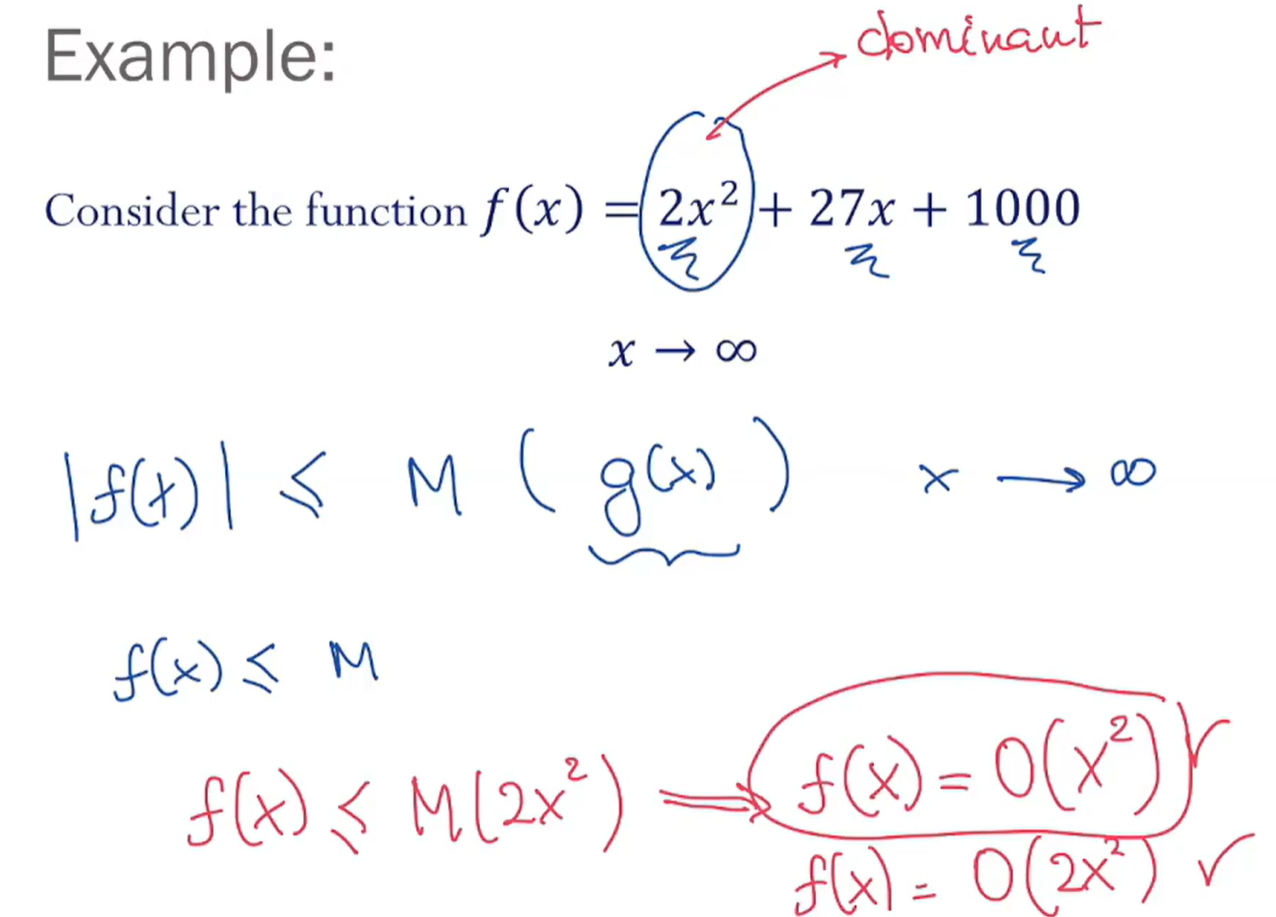 Example:
dominant
Consider the function f(x) = 2x² + 27x + 1000
x → ∞
|f(x)| ⩽ M ( g(x) ) x → ∞
f(x) ⩽ M
f(x) ⩽ M(2x²) ⟹ f(x) = O(x²) ✓
f(x) = O(2x²) ✓